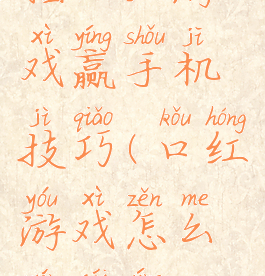 xì yíng shǒu jī
戏赢手机
jì qiǎo kǒu hóng
技巧(口红
yóu xì zěn me
游戏怎么